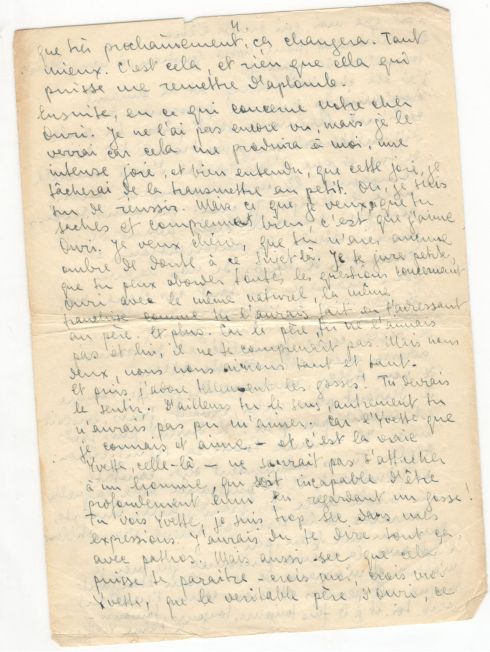 4.
que très prochainement, ça changera. Tant
mieux. C'est cela, et rien que cela qui
puisse me remettre d'aplomb.
Ensuite, en ce qui concerne notre cher
Ouri. Je ne l'ai pas encore vu, mais je le
verrai car cela me produira à moi, une
intense joie, et bien entendu, que cette joie, je
tâcherai de la transmettre au petit. Oh, je suis
sur de réussir. Mais ce que je veux que tu
saches et comprennes bien, c'est que j'aime
Ouri. Je veux chérie, que tu n'aies aucune
ombre de doute à ce sujet-là. Je te jure petite,
que tu peux aborder toutes les questions concernant
Ouri avec le même naturel, la même
franchise comme tu l'aurais fait en t'adressant
au père. Et plus. Car le père tu ne l'aimais
pas et lui, il ne te comprenait pas. Mais nous
deux, nous nous aimons tant et tant.
Et puis, j'adore tellement les gosses! Tu devrais
le sentir. D'ailleurs tu le sens, autrement tu
n'aurais pas pu m'aimer. Car l'Yvette que
je connais et aime - et c'est la vraie
Yvette, celle-là - ne saurait pas s'attacher
à un homme, qui soit incapable d'être
profondément ému en regardant un gosse!
Tu vois Yvette, je suis trop sec dans mes
expressions. J'aurais du te dire tout ça
avec pathos. Mais aussi sec que cela
puisse te paraître - crois moi crois moi
Yvette, que le véritable père d'Ouri, ce